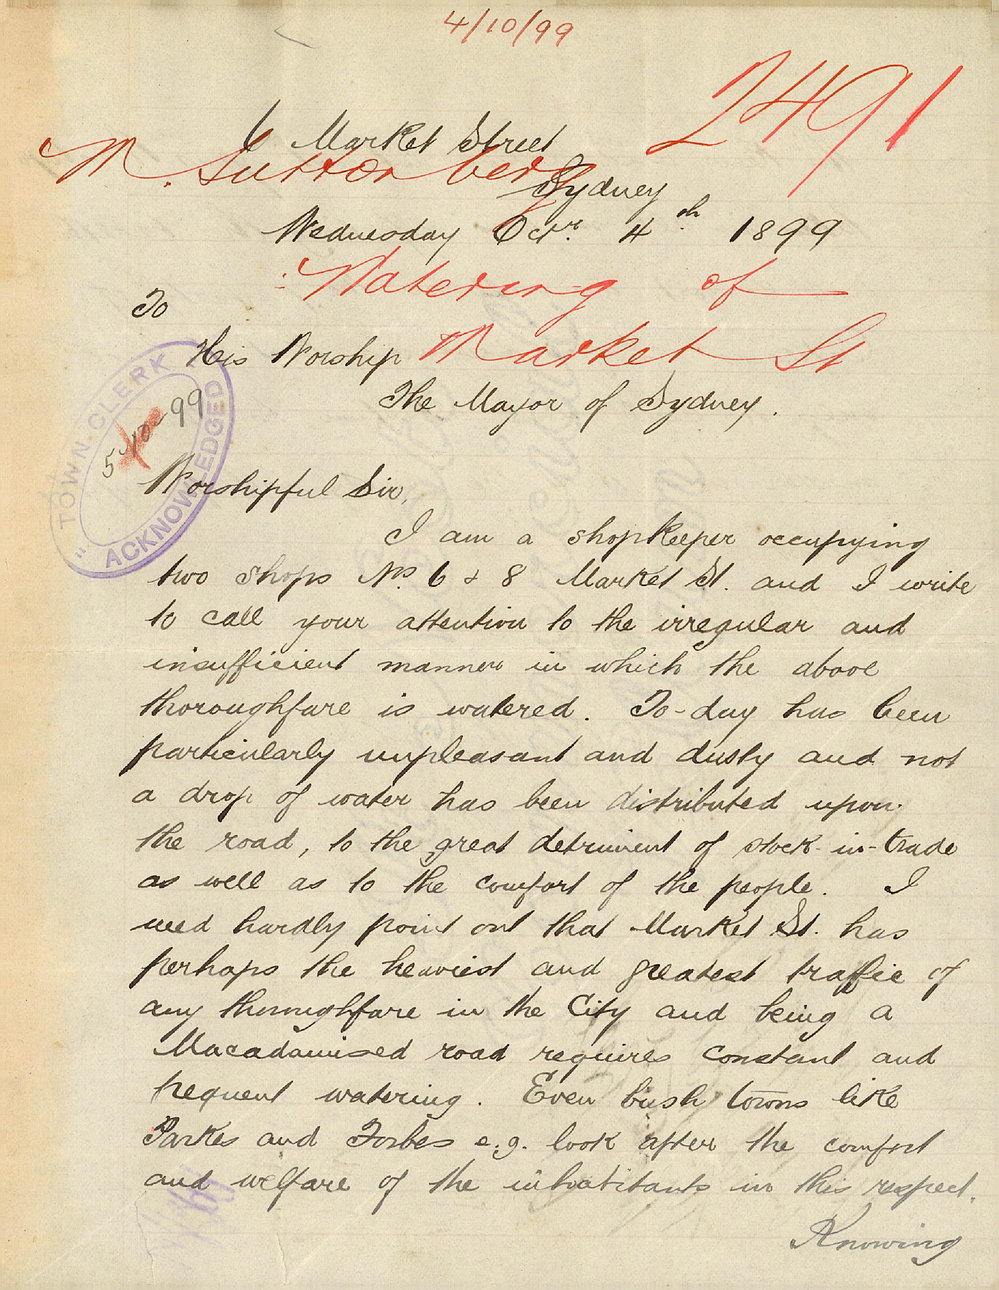 4/10/99
2491
6 Market Street
M. Guttenberg
Sydney
Wednesday Octr. 4th 1899
Watering of
To
His Worship
Market St
The Mayor of Sydney.
"TOWN CLERK
5/10/99
ACKNOWLEDGED
Worshipful Sir,
I am a shopkeeper occupying
two shops Nos 6 & 8 Market St. and I write
to call your attention to the irregular and
insufficient manner in which the above
thoroughfare is watered. To-day has been
particularly unpleasant and dusty and not
a drop of water has been distributed upon
the road, to the great detriment of stock-in-trade
as well as to the comfort of the people. I
need hardly point out that Market St. has
perhaps the heaviest and greatest traffic of
any thoroughfare in the City and being a
Macadamised road requires constant and
frequent watering. Even bush towns like
Parkes and Forbes e.g. look after the comfort
and welfare of the inhabitants in this respect.
Knowing